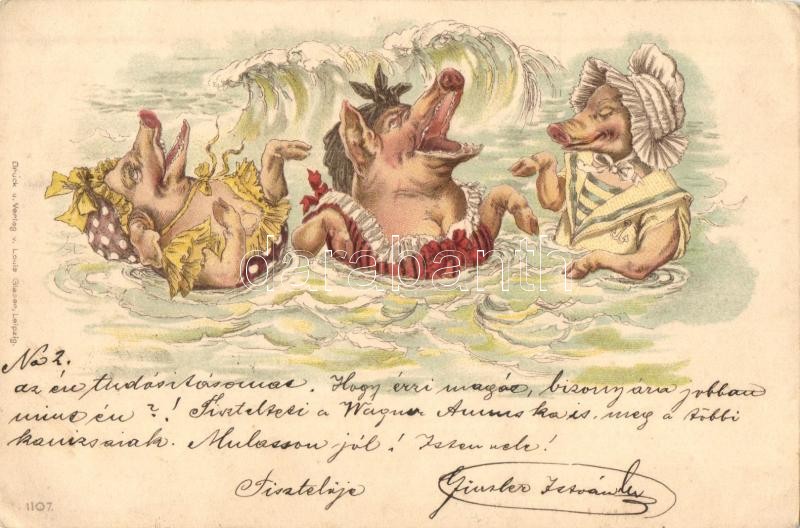 Druck u. Verlag v. Louis Glaser, Leipzig.
darabanth
No 2.
az én tudósitásomat. Hogy érzi magát, bizonyára jobban
mint én ?! Tisztelteti a Wagner Annuska is. meg a többi
kanizsaiak. Mulasson jól! Isten vele!
Tisztelője Ginzler István
1107.